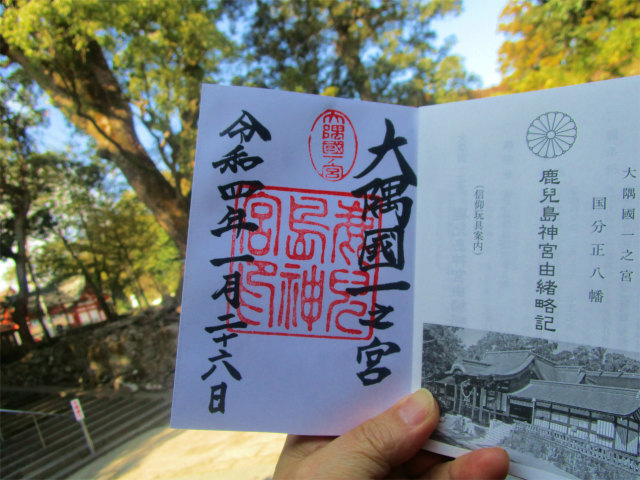 大隅國一之宮
大隅國一ノ宮
鹿兒島神宮印
令和四年一月二十六日
大隅國一之宮
国分正八幡
鹿兒島神宮由緒略記
(信仰玩具案内)